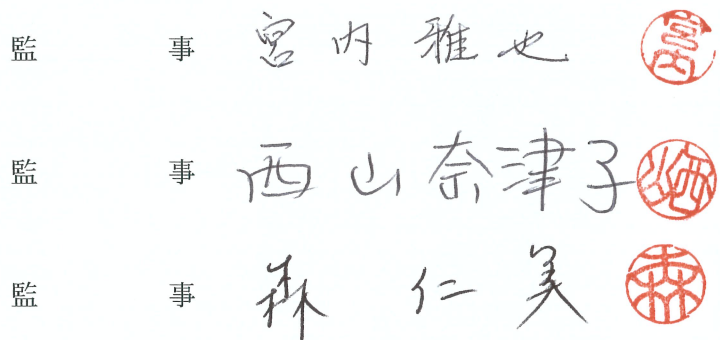 監事 宮内雅也 宮内
監事 西山奈津子 西山
監事 森仁美 森